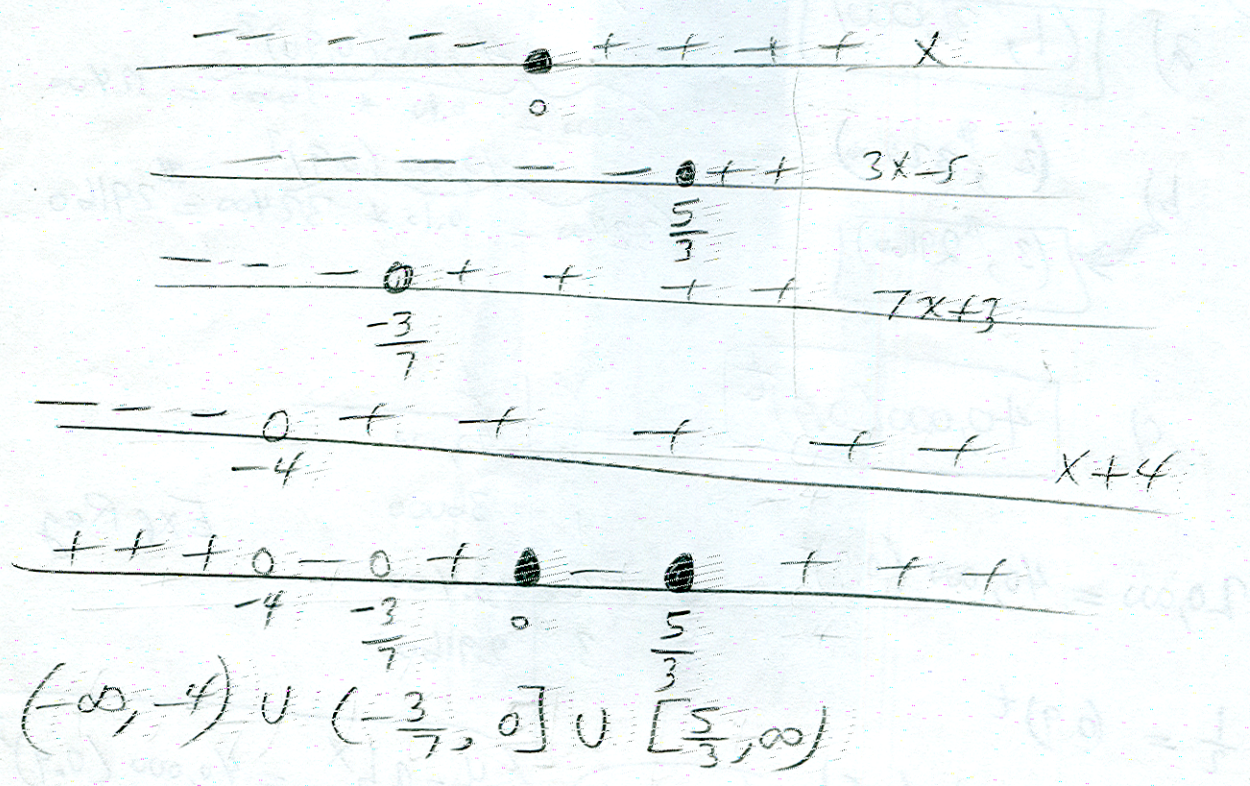 - - - - - ● + + + + x
0
- - - - - ● + + 3x-5
5/3
- - - o + + + + 7x+3
-3/7
- - - o + + + + + x+4
-4
+ + + o - o + ● - ● + + +
-4 -3/7 0 5/3
(-∞, -4) ∪ (-3/7, 0] ∪ [5/3, ∞)